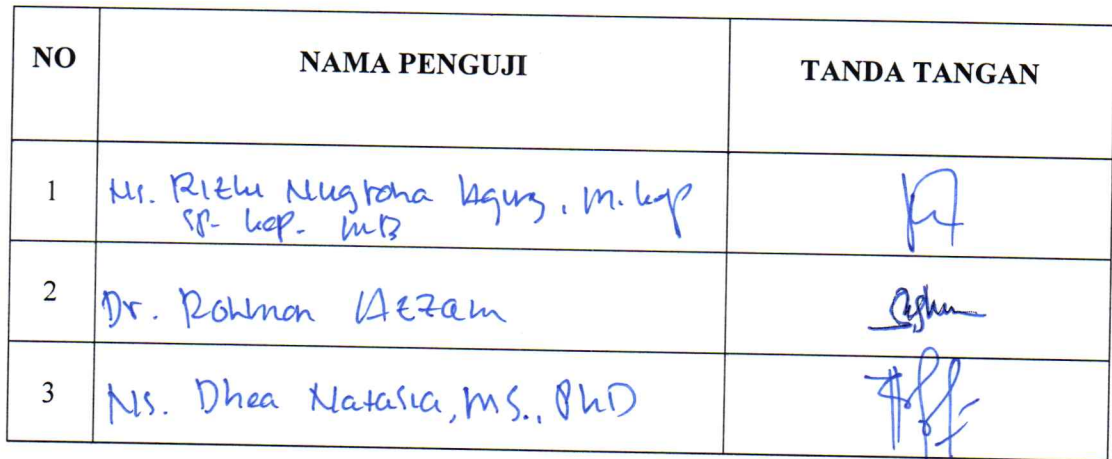 NO NAMA PENGUJI TANDA TANGAN
1 Ns. Rizki Nugroho Agung, M.kep
Sp. kep. MB
2 Dr. Rohman Azzam
3 Ns. Dhea Natasia, MS., PhD